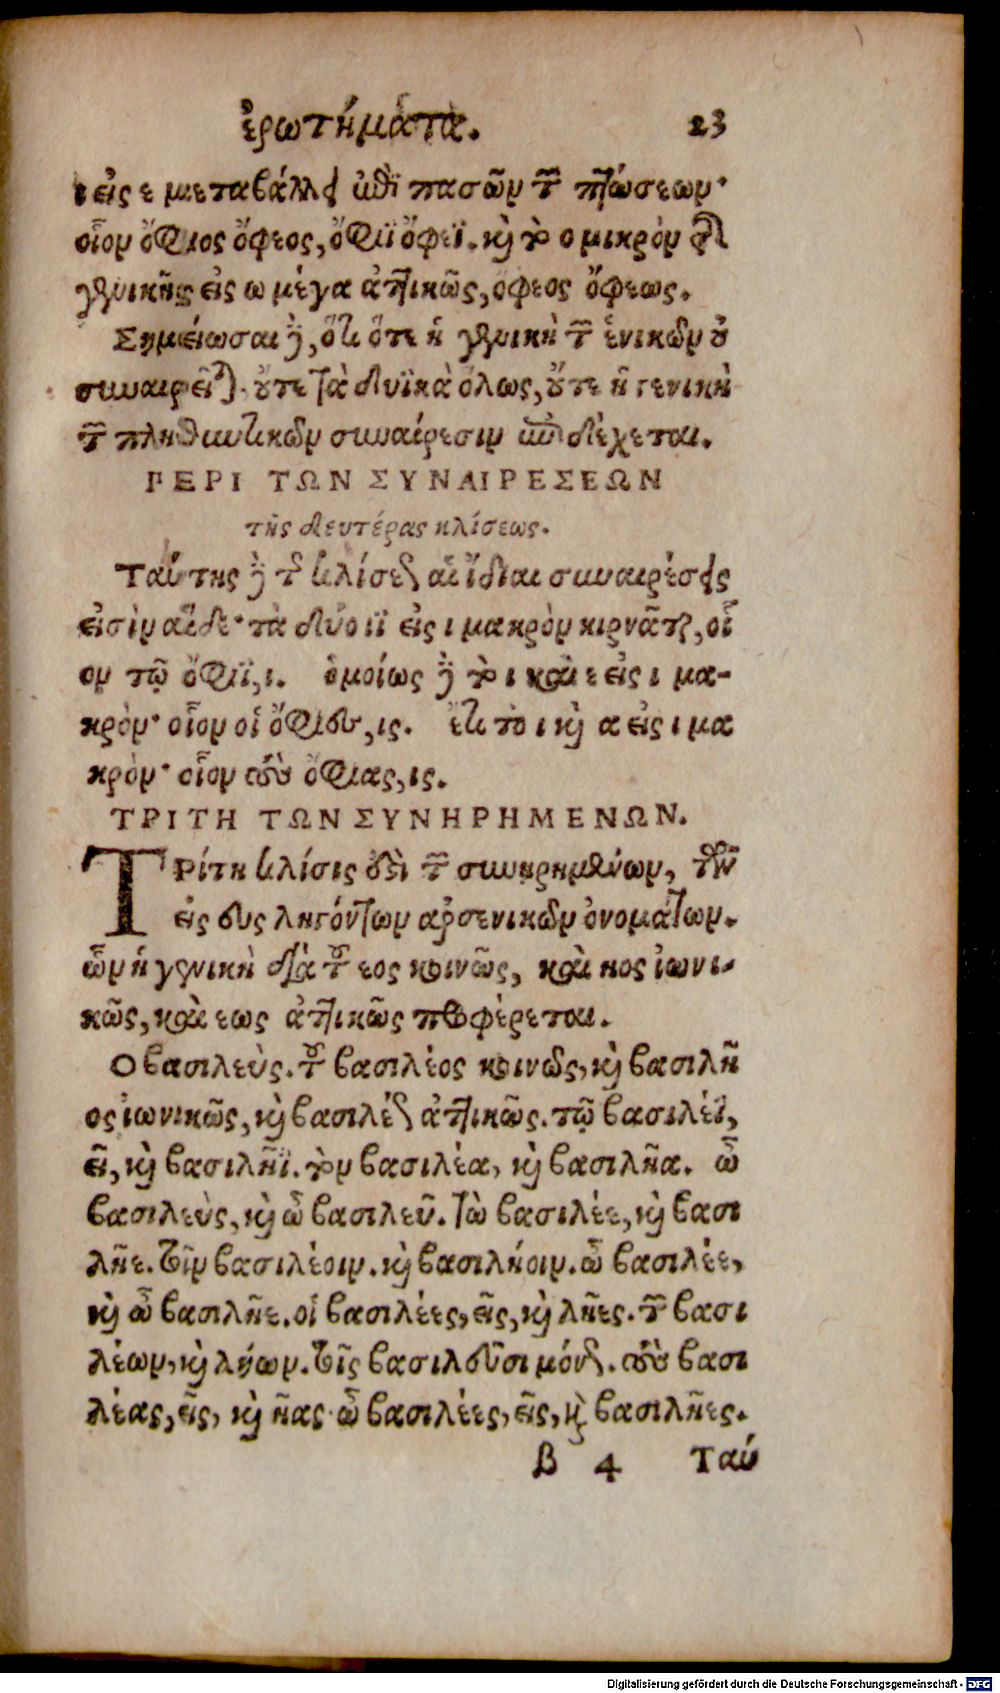 ἐρωτήματα. 23
ι εἰς ε μεταβάλλει ἐπὶ πασῶν τῶν πτώσεων·
οἷον ὄφιος ὄφεος, ὄφιϊ ὄφεϊ. καὶ τὸ ο μικρὸν τῆς
γενικῆς εἰς ω μέγα ἀττικῶς, ὄφεος ὄφεως.
Σημείωσαι δὲ, ὅτι ὅτε ἡ γενικὴ τῶν ἑνικῶν οὐ
συναιρεῖται. οὔτε τὰ δυϊκὰ ὅλως, οὔτε ἡ γενικὴ
τῶν πληθυντικῶν συναίρεσιν ἐπιδέχεται.
ΠΕΡΙ ΤΩΝ ΣΥΝΑΙΡΕΣΕΩΝ
τῆς δευτέρας κλίσεως.
Ταύτης δὲ τῆς κλίσεως αἱ ἴδιαι συναιρέσεις
εἰσὶν αἵδε· τὰ δύο ιϊ εἰς ι μακρὸν κιρνᾶται, οἷ
ον τῷ ὄφιϊ, ι. ὁμοίως δὲ τὸ ι καὶ ε εἰς ι μα-
κρὸν· οἷον οἱ ὄφιες, ις. ἔτι τὸ ι καὶ α εἰς ι μα
κρὸν· οἷον τοὺς ὄφιας, ις.
ΤΡΙΤΗ ΤΩΝ ΣΥΝΗΡΗΜΕΝΩΝ.
ΤΡίτη κλίσις ἐστὶ τῶν συνηρημένων, τῶν
εἰς ευς ληγόντων ἀρσενικῶν ὀνομάτων.
ὧν ἡ γενικὴ διὰ τοῦ εος κοινῶς, καὶ ηος ἰωνι-
κῶς, καὶ εως ἀττικῶς προφέρεται.
Ο βασιλεὺς. τοῦ βασιλέος κοινῶς, καὶ βασιλῆ
ος ἰωνικῶς, καὶ βασιλέως ἀττικῶς. τῷ βασιλέϊ,
εῖ, καὶ βασιλῆϊ. τὸν βασιλέα, καὶ βασιλῆα. ὦ
βασιλεὺς, καὶ ὦ βασιλεῦ. τὼ βασιλέε, καὶ βασι
λῆε. τοῖν βασιλέοιν. καὶ βασιλήοιν. ὦ βασιλέε,
καὶ ὦ βασιλῆε. οἱ βασιλέες, εῖς, καὶ λῆες. τῶν βασι
λέων, καὶ λήων. τοῖς βασιλεῦσι μόνως. τοὺς βασι
λέας, εῖς, καὶ ῆας· ὦ βασιλέες, εῖς, καὶ βασιλῆες.
β 4 Ταύ
Digitalisierung gefördert durch die Deutsche Forschungsgemeinschaft - DFG